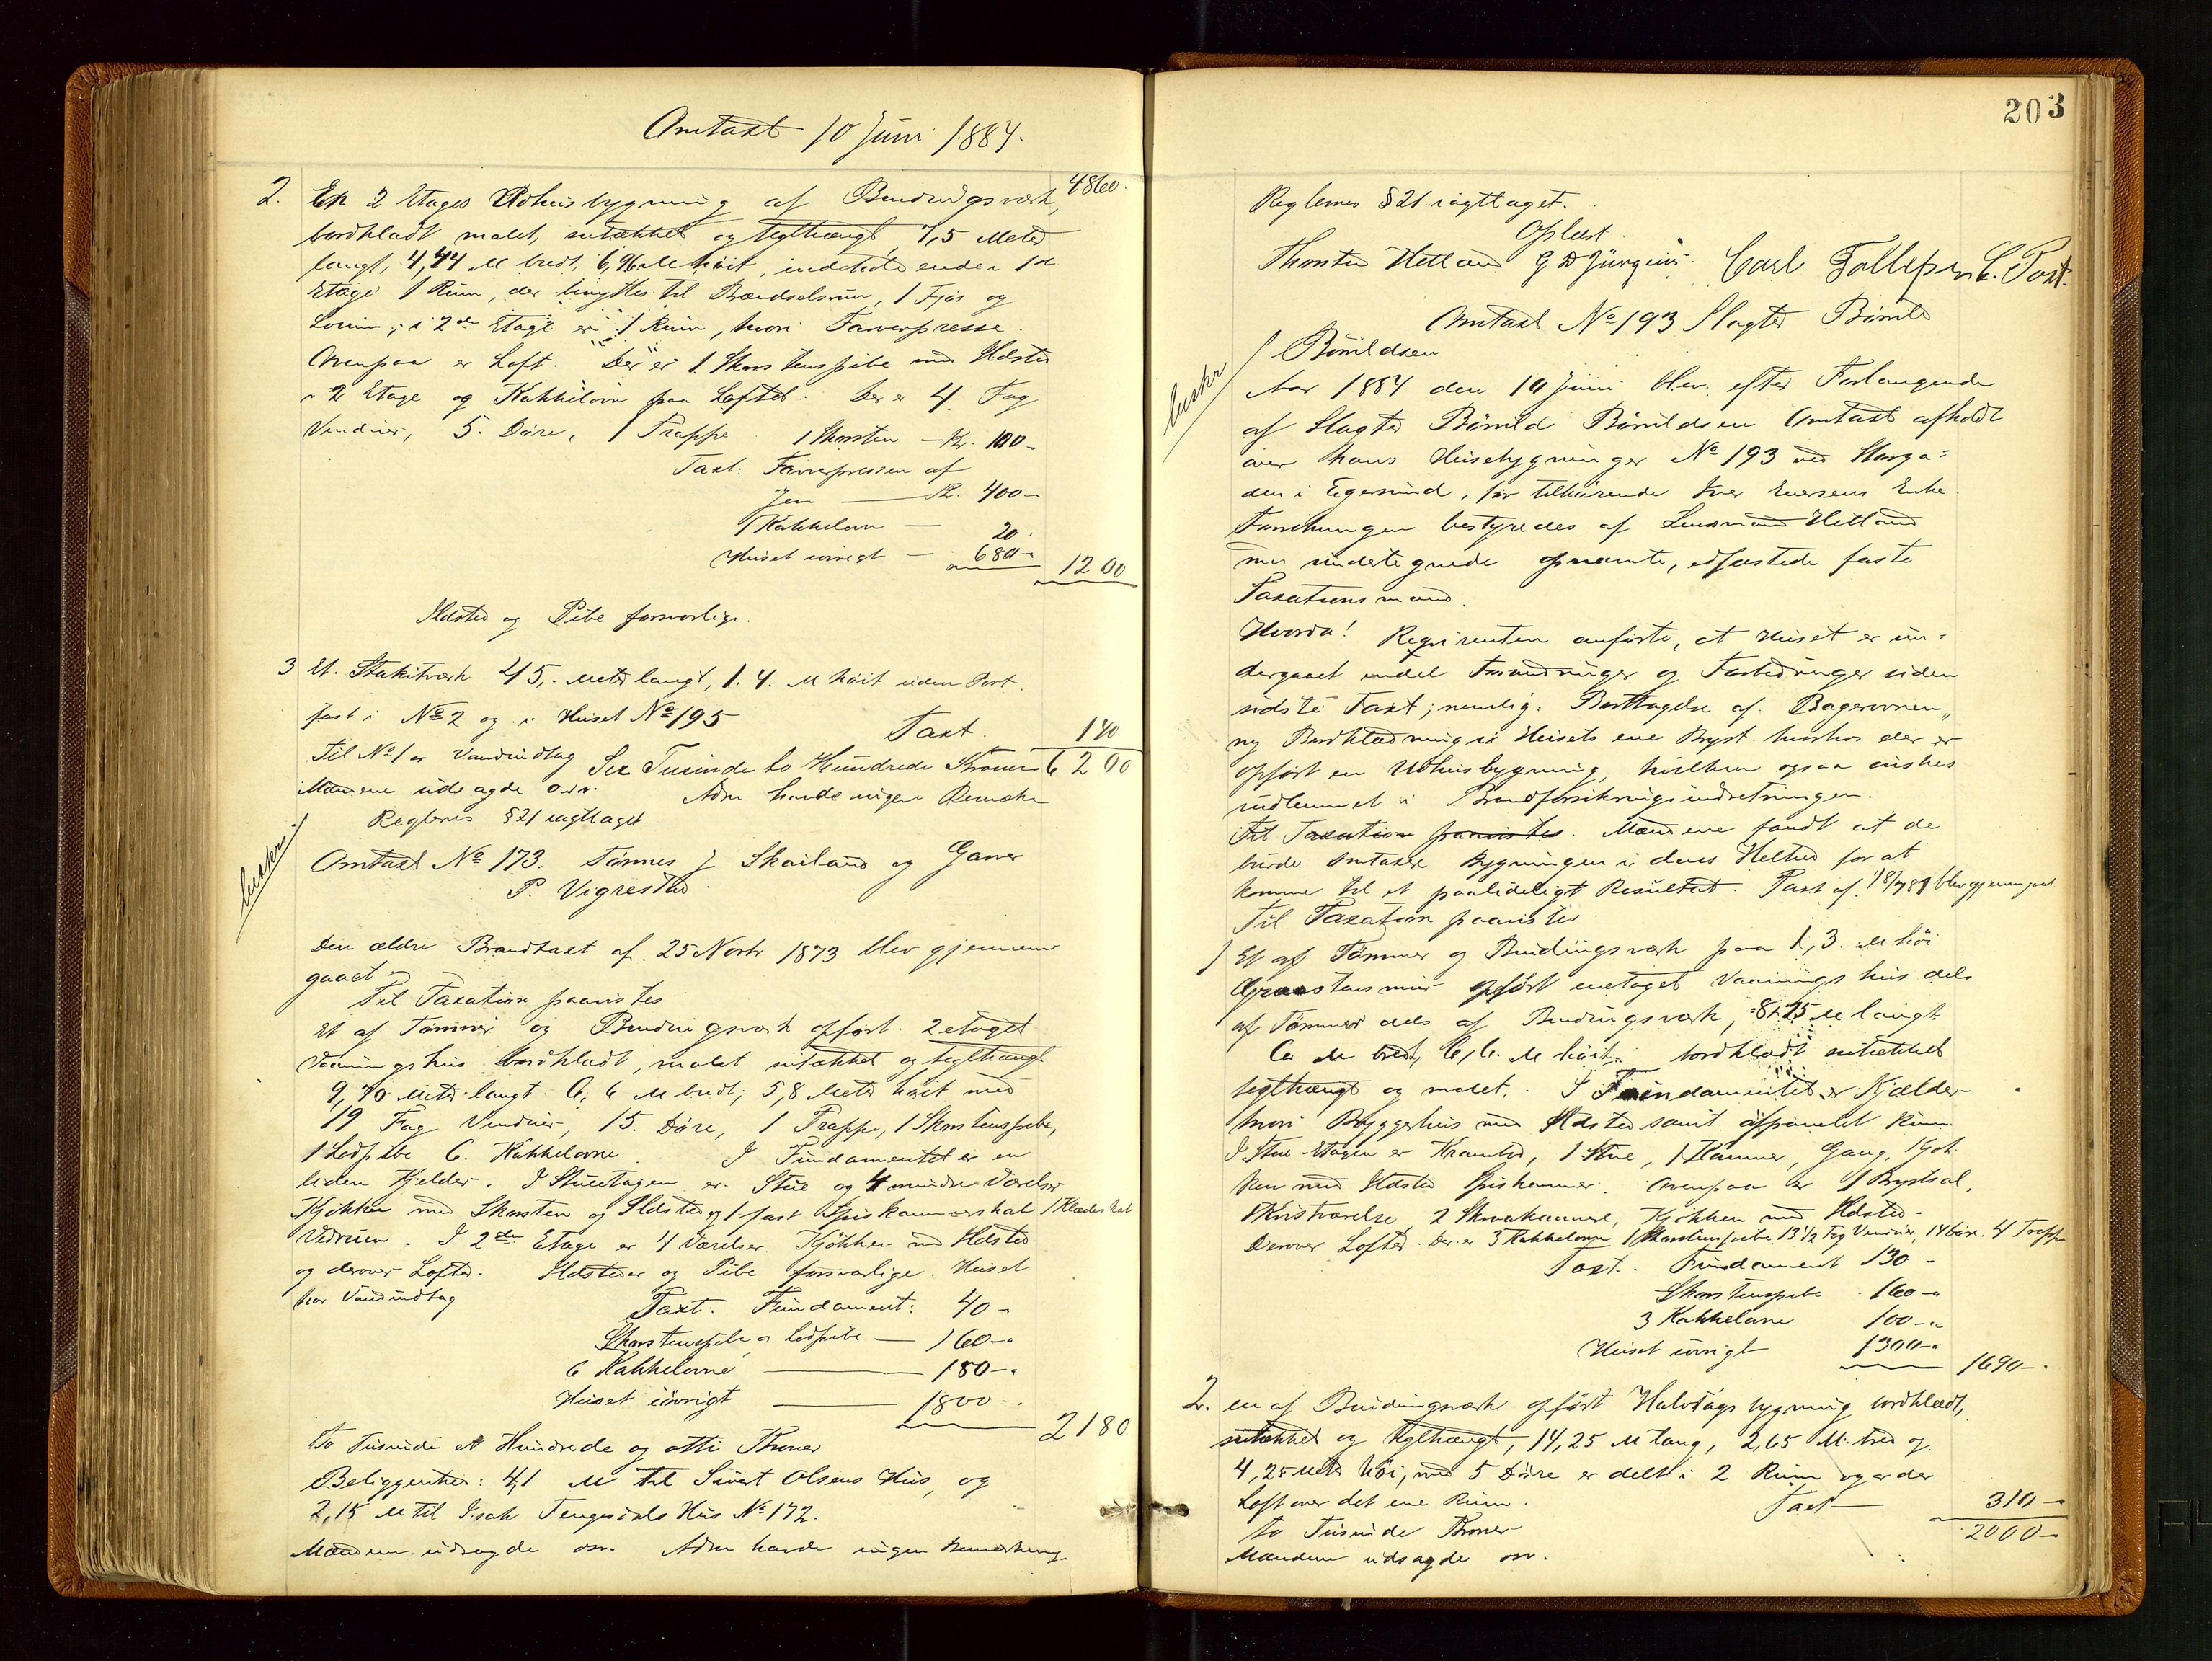 Omtaxt 10 Juni 1884.
4860.
2. En 2 Etages Udhusbygning af Bindingsværk,
bordklædt malet, sutækket og teglhængt 7,5 Meter
langt, 4,44 M bredt, 6,96 M høit, indeholdende i 1ste
Etage 1 Rum, der benyttes til Brændselsrum, 1 Fjøs og
i 2den Etage er 1 Rum, hvori Farverpresse.
Ovenpaa er Loft. Der er 1 Skorstenspibe med Ildsted
i 2 Etage og Kakkelovn paa Loftet. Der er 4 Fag
Vinduer, 5 Døre, 1 Trappe 1 Skorsten – Kr. 100 –
Taxt: Farverpressen af
Jern — R. 400 –
1 Kakkelovn — 20
Huset iøvrigt — 680 –
1200
Ildsted og Pibe forsvarlige.
3 Et Stakitværk 45,- Meter langt, 1.4. M høit uden Port.
fast i No 2 og i Huset No 195
Taxt. 140
Til No 1 er Vandindtag Sex Tusinde to Hundrede Kroner 6200
Mændene udsagde o.s.v. Adm. havde ingen Bemærkn
Reglernes §21 iagttaget
Omtaxt No 173. Tønnes J Skailand og Ganer
P. Vigrestad.
Den ældre Brandtaxt af 25 Novbr 1873 blev gjennem-
gaaet
Til Taxation paavistes
Et af Tømmer og Bindingsværk opført 2 etaget
Vaaningshus bordklædt, malet sutækket og teglhængt
9,70 Meter langt 6,6 M bredt, 5,8 Meter høit med
19 Fag Vinduer, 15. Døre, 1 Trappe, 1 Skorstenspibe,
1 Lodpibe 6. Kakkelovne. I Fundamentet er en
liden Kjelder. I Stueetagen er Stue og 4 mindre Værelser
Kjøkken med Skorsten og Ildsted og 1 fast Spiskammerskab 1 Klædeskab
Vedrum. I 2den Etage er 4 Værelser Kjøkken med Ildsted
og derover Loftet. Ildsteder og Pibe forsvarlige. Huset
har Vandindtag
Taxt. Fundament: 40 –
Skorstenspibe og Lodpibe — 160 –
6 Kakkelovne — 180 –
Huset iøvrigt — 1800 –
2180
to Tusinde et Hundrede og otti Kroner
Beliggenhed: 4,1 M til Sivert Olsens Hus, og
2,15 M til Isak Tengesdals Hus No 172.
Mændene udsagde osv. Adm havde ingen Bemærkning.
203
Reglernes § 21 iagttaget.
Oplæst
Thorsten Hetland G D Jürgens Carl Tollefsen C. Post.
Omtaxt No 193 Slagter Børild
Børildsen
Aar 1884 den 10 Juni blev efter Forlangende
af Slagter Børild Børildsen Omtaxt afholdt
over hans Husebygninger No 193 ved Storga=
den i Egersund, før tilhørende Iver Iversens Enke
Forretningen bestyredes af Lensmand Hetland
med undertegnede opnævnte, edfæstede faste
Taxationsmænd.
Hvorda! Reqvirenten anførte, at Huset er un=
dergaaet endel Forandringer og Forbedringer siden
sidste Taxt; nemlig: Borttagelse af Bagerovnen,
ny Bordklædning i Husets ene Bryst. hvorhos der er
opført en Udhusbygning, hvilken ogsaa ønskes
indlemmet i Brandforsikringsindretningen.
Til Taxation paavistes. Mændene fandt at de
burde omtaxere Bygningen i dens Helhed for at
komme til et paalideligt Resultat. Taxt af 18/7 81 blev gjennemgaaet
Til Taxation paavistes
1 Et af Tømmer og Bindingsværk paa 1,3. M høi
Graastensmur opført enetaget Vaaningshus dels
af Tømmer dels af Bindingsværk, 8,25 M langt
6 M bredt, 6,6. M høit, bordklædt sutækket
teglhængt og malet. I Fundamentet er Kjælder
hvori Bryggerhus med Ildsted samt afpanelet Rum
I Stue-Etagen er Krambod, 1 Stue, 1 Kammer, Gang, Kjøk
ken med Ildsted Spiskammer. Ovenpaa er 1 Brystsal,
1 Kvistværelse 2 Skraakammere, Kjøkken med Ildsted.
Derover Loftet. Der er 3 Kakkelovne 1 Skorstenspibe 13 1/2 Fag Vinduer, 14 Døre. 4 Trapper
Taxt. Fundament 130 –
Skorstenspibe 160 –
3 Kakkelovne 100 –
Huset iøvrigt 1300 –
1690 –
2. en af Bindingsværk opført Halvtagsbygning bordklædt,
sutækket og teglhængt, 14,25 M lang, 2,65 M. bred og
4,25 Meter høi, med 5 Døre er delt i 2 Rum og er der
Loft over det ene Rum. Taxt — 310 –
to Tusinde Kroner 2000 –
Mændene udsagde osv.